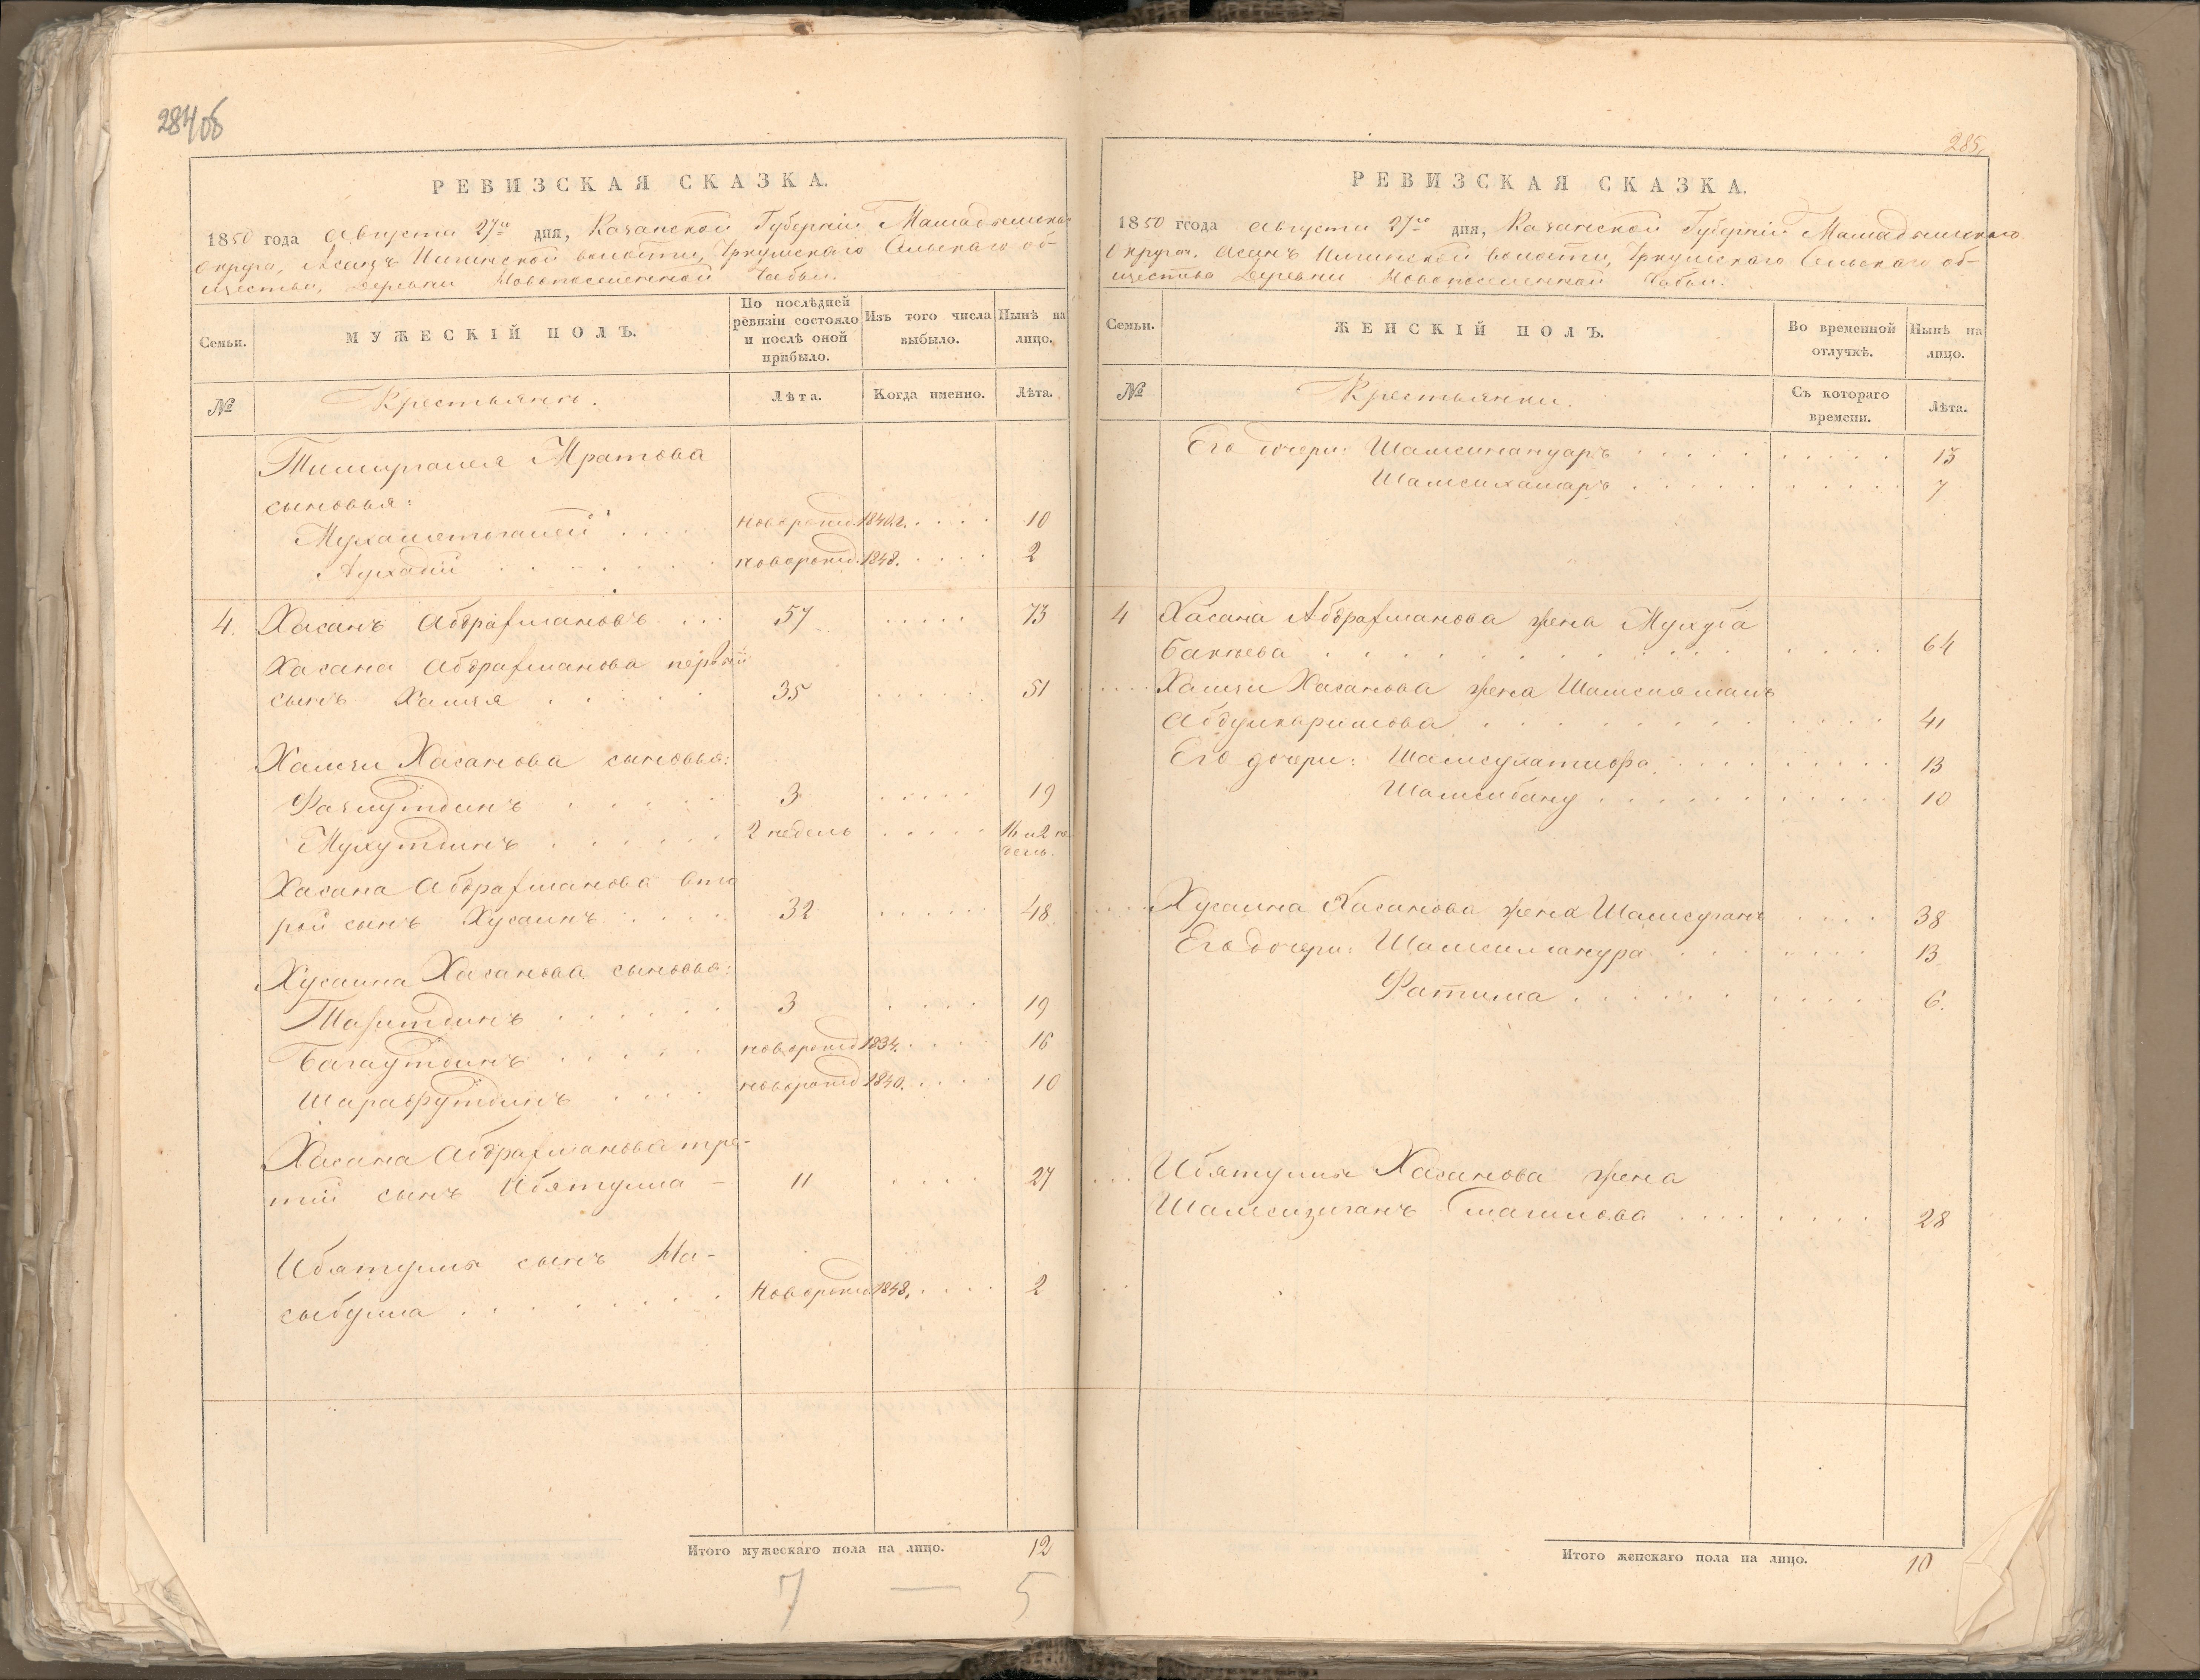 284 об
РЕВИЗСКАЯ СКАЗКА.
1850 года Августа 27го дня, Казанской Губерніи Мамадышска
Округа, Асанъ Илгинской волости, Уркушскаго Сельскаго об-
щества, деревни Новопоселенной Чабьи.
Семьи.
МУЖЕСКІЙ ПОЛЪ.
По послѣдней
ревизіи состояло
и послѣ оной
прибыло.
Изъ того числа
выбыло.
Нынѣ на
лицо.
№
Крестьянъ.
Лѣта.
Когда именно.
Лѣта.
Тимиргалея Мратова
сыновья:
Мухаметьгалей новорожд. 1840 г. 10
Ахмадій новорожд. 1848. 2
4. Хасанъ Абдрахмановъ 57 73
Хасана Абдрахманова первый
сынъ Хамзя 35 51
Хамзи Хасанова сыновья:
Фазлутдинъ 3 19
Мухутдинъ 2 недель 16 и 2 не
дель.
Хасана Абдрахманова вто
рой сынъ Хусаинъ 32 48
Хусаина Хасанова сыновья:
Тазитдинъ 3 19
Багаутдинъ новорожд 1834. 16
Шарафутдинъ новорожд 1840. 10
Хасана Абдрахманова тре-
тій сынъ Ибятулла 11 27
Ибятуллы сынъ На-
сыбулла Новорожд 1848. 2
Итого мужескаго пола на лицо. 12
7 — 5
285.
РЕВИЗСКАЯ СКАЗКА.
1850 ггода Августа 27го дня, Казанской Губерніи Мамадышскаго
Округа. Асанъ Илгинской волости, Уркушскаго Сельскаго об-
щества Деревни Новопоселенной Чабьи.
Семьи.
ЖЕНСКІЙ ПОЛЪ.
Во временной
отлучкѣ.
Нынѣ на
лицо.
№
Крестьянки.
Съ котораго
времени.
Лѣта.
Его дочери: Шамсинануаръ 13
Шамсикамаръ 7
4 Хасана Абдрахманова жена Мухуба
Баккева 64
Хамзи Хасанова жена Шамсиямалъ
Абдулкаримова 41
Его дочери: Шамсулатифа 13
Шамсибану 10
Хусаина Хасанова жена Шамсуганъ 38
Его дочери: Шамсиманура 13
Фатима 6.
Ибятуллы Хасанова жена
Шамсизиганъ Смагилова 28
Итого женскаго пола на лицо. 10